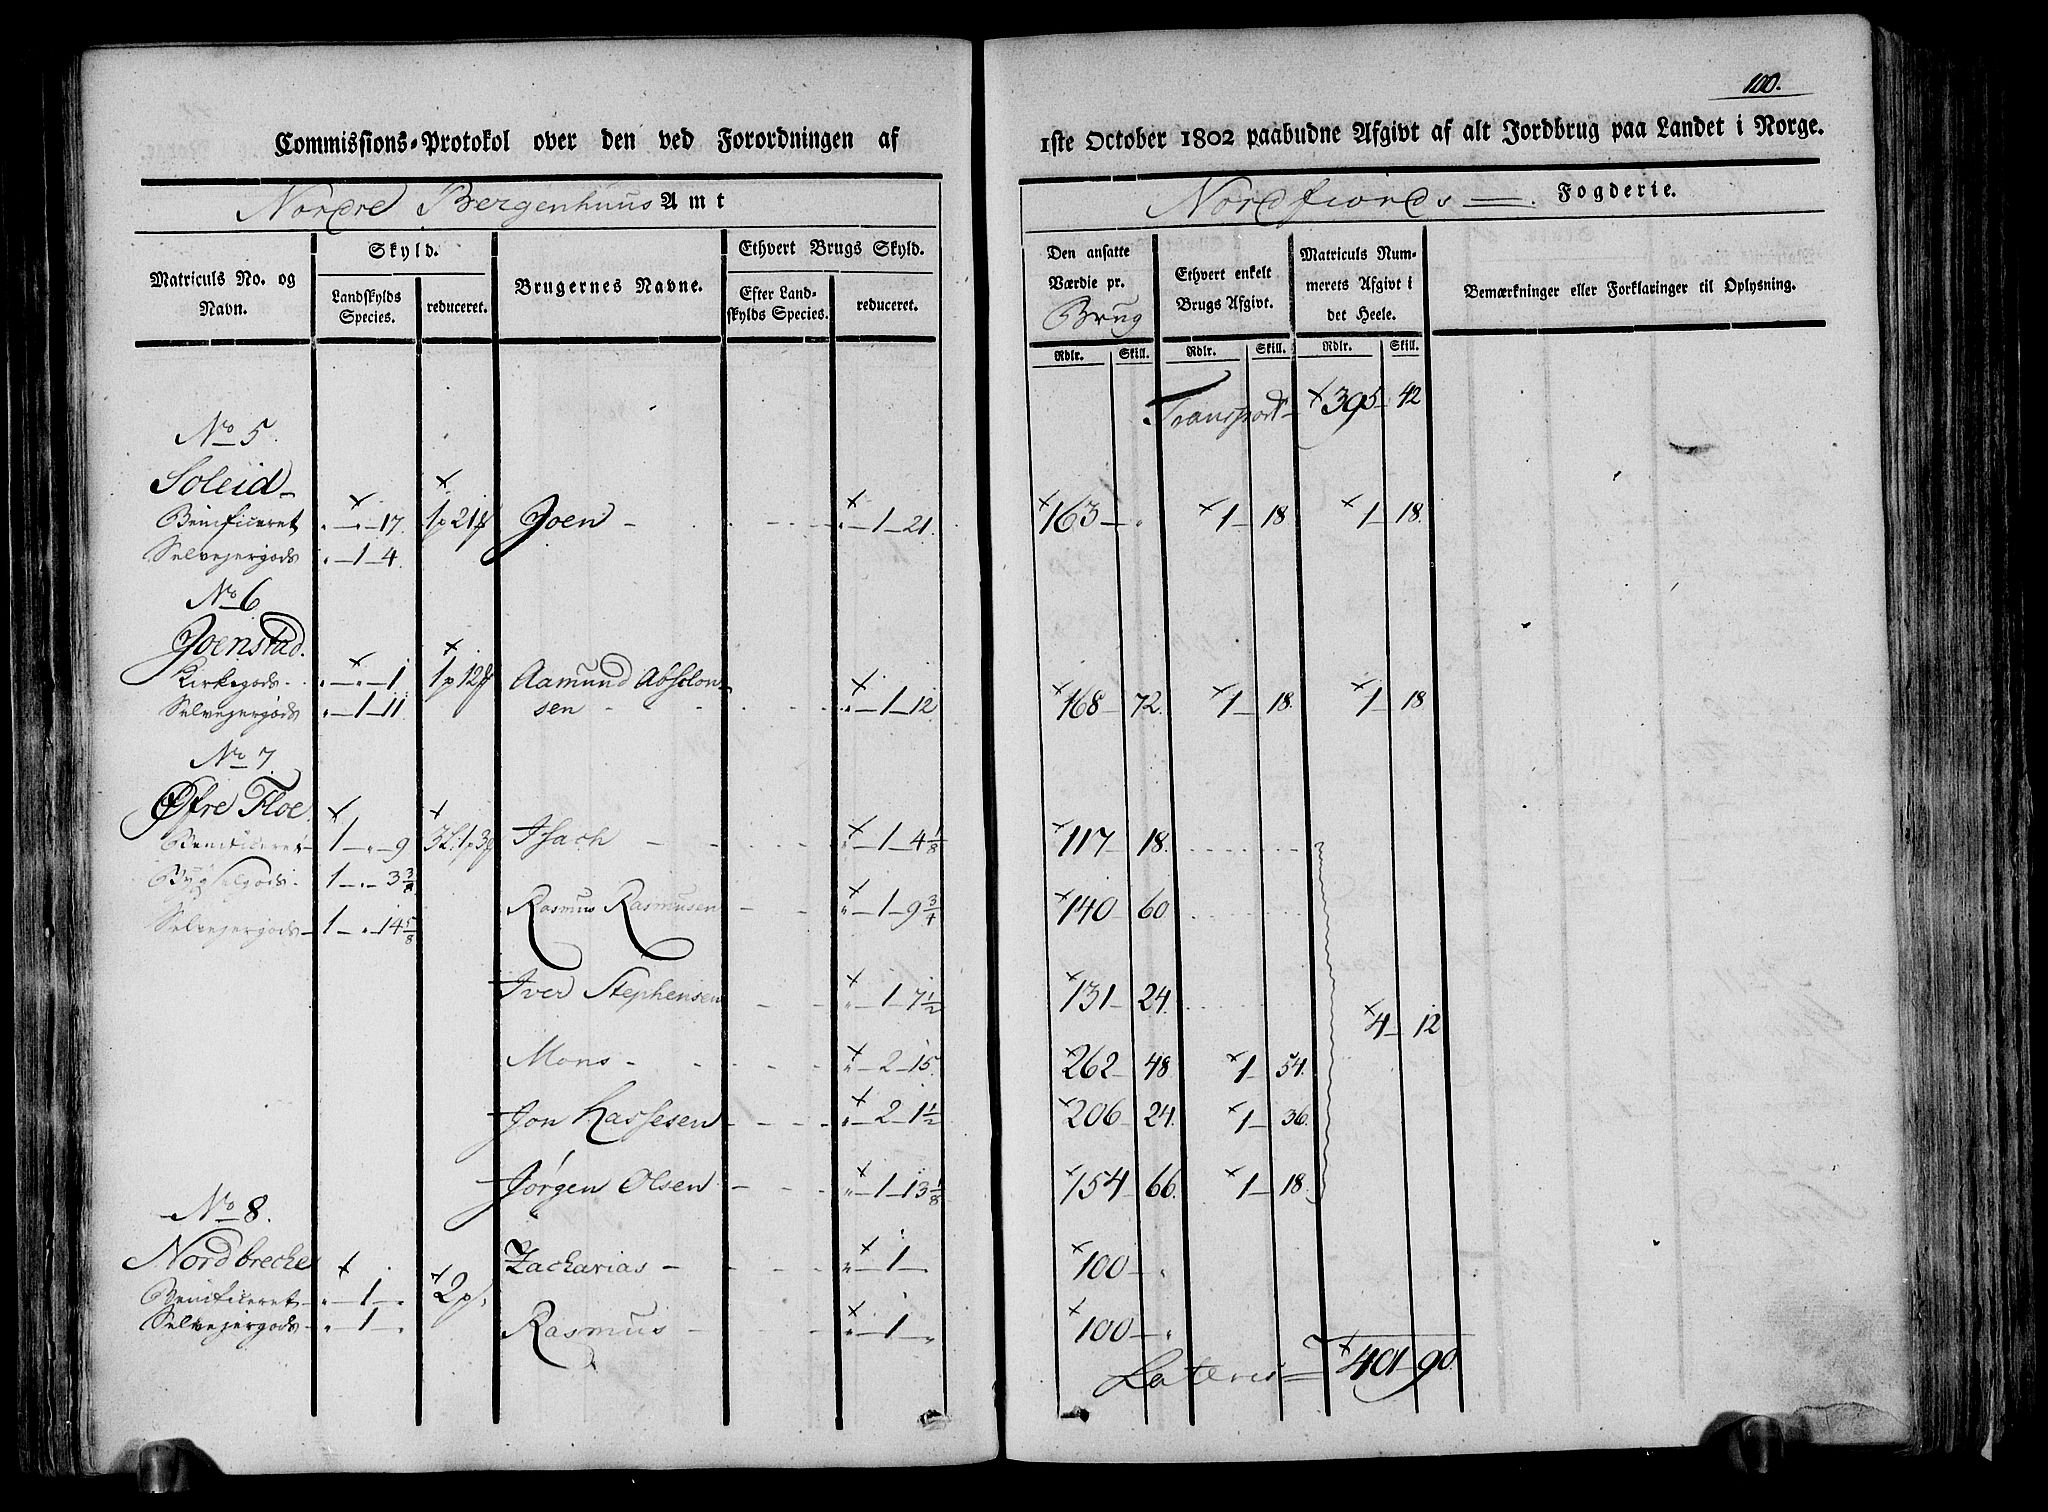 100.
Commissions-Protokol over den ved Forordningen af
1ste October 1802 paabudne Afgivt af alt Jordbrug paa Landet i Norge.
Nordre Bergenhuus Amt
Nordfiords Fogderie.
Matriculs No. og Navn.
Skyld.
Landskylds Species.
reduceret.
Brugernes Navne.
Ethvert Brugs Skyld.
Efter Landskylds Species.
reduceret.
Den ansatte Værdie pr. Brug
Rdlr. Skill.
Ethvert enkelt Brugs Afgivt.
Rdlr. Skill.
Matriculs Nummerets Afgivt i det Heele.
Rdlr. Skill.
Bemærkninger eller Forklaringer til Oplysning.
Transport 395 42
No 5.
Soleid
Beneficeret " " 17. 1p 21 Joen " 1 21. 163 " 1 18 1 18.
Selvejergods " 1 4.
No 6
Joenstad.
Kirkegods " " 1 1p 12 Aamund Absolon-
Selvejergods " 1 11 sen " 1 12 168 72. 1 18. 1 18
No 7
Øfre Floe
Beneficeret 1 " 9 3L. 1p 3 Isach " 1 4 1/8 117 18.
Bygselgods 1 " 3 3/4
Rasmus Rasmusen " 1 9 3/4 140 60
Selvejergods 1 " 14 5/8
Iver Stephensen " 1 7 1/2 131 24.
4 12
Mons " 2 15. 262 48 1 54.
Jon Lassesen " 2 1 1/2 206 24. 1 36.
Jørgen Olsen " 1 13 1/8 154 66. 1 18.
No 8.
Nordbreche Zacharias " 1 100 "
Beneficeret " 1 " 2p
Selvejergods " 1 " Rasmus " 1 " 100 "
Lateris 401 90.